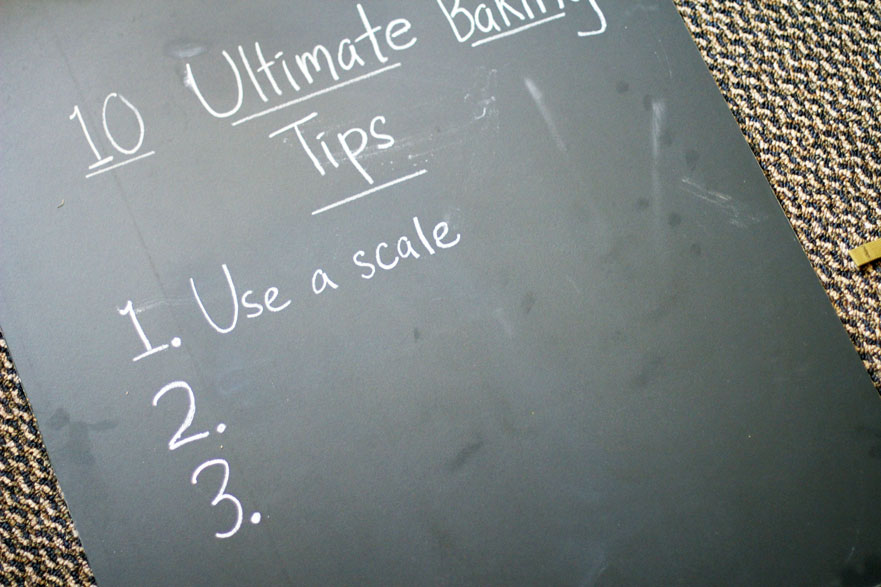 10 Ultimate Baking
Tips
1. Use a scale
2.
3.